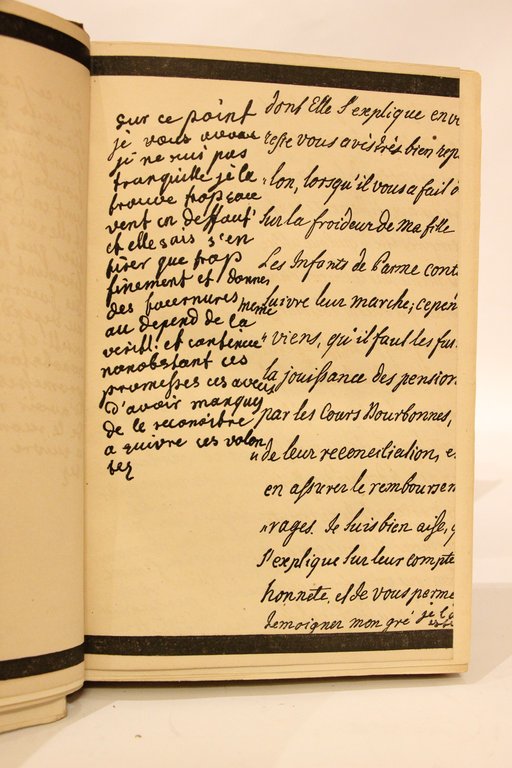 sur ce point
je vous avoue
je ne suis pas
tranquille je la
trouve trop sou
vent en deffaut
et elle sais s'en
tirer que trop
finement et donner
des tournures meme
au depend de la
verité: et contence
nonobstant ces
promesses ces aveus
d'avoir manqué
de le reconoitre
a suivre ces volon
tez
dont Elle s'explique env
reste vous avis très bien rep
lon, lorsqu'il vous a fait
sur la froideur de Ma fille
Les Infants de Parme cont
suivre leur marche; cepen
viens, qu'il faut les fus
la jouissance des pension
par les Cours Bourbonnes,
"de leur reconciliation, e
en assurer le remboursem
"rages. Je suis bien aise, q
s'explique sur leur compte
honnete, et de vous perme
temoigner mon gré je l'